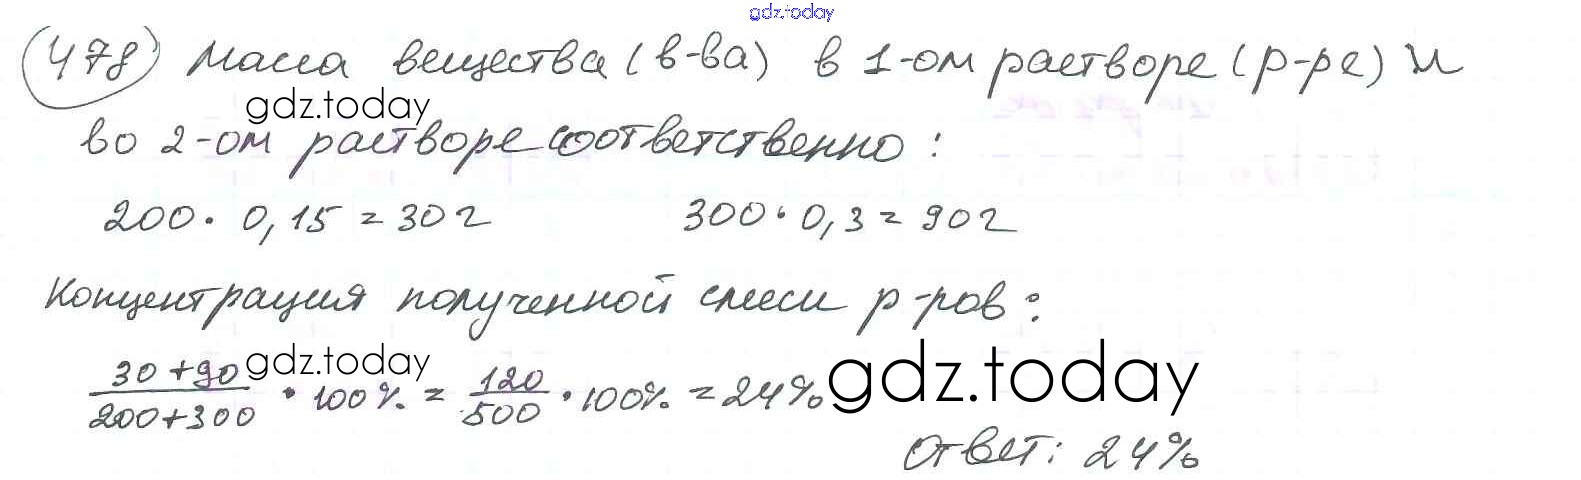 gdz.today
478 Масса вещества (в-ва) в 1-ом растворе (р-ре) и
gdz.today
во 2-ом растворе соответственно:
200 · 0,15 = 30 г 300 · 0,3 = 90 г
Концентрация полученной смеси р-ров:
gdz.today
30 + 90 / 200 + 300 · 100% = 120 / 500 · 100% = 24%
gdz.today
Ответ: 24%